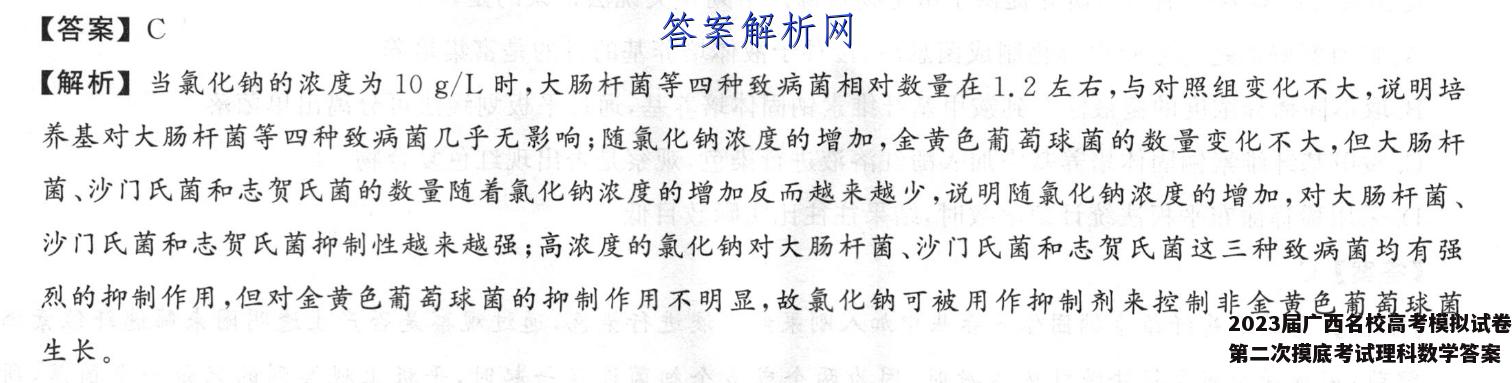 【答案】C
答案解析网
【解析】当氯化钠的浓度为 10 g/L 时,大肠杆菌等四种致病菌相对数量在 1.2 左右,与对照组变化不大,说明培
养基对大肠杆菌等四种致病菌几乎无影响;随氯化钠浓度的增加,金黄色葡萄球菌的数量变化不大,但大肠杆
菌、沙门氏菌和志贺氏菌的数量随着氯化钠浓度的增加反而越来越少,说明随氯化钠浓度的增加,对大肠杆菌、
沙门氏菌和志贺氏菌抑制性越来越强;高浓度的氯化钠对大肠杆菌、沙门氏菌和志贺氏菌这三种致病菌均有强
烈的抑制作用,但对金黄色葡萄球菌的抑制作用不明显,故氯化钠可被用作抑制剂来控制非金黄色葡萄球菌
生长。
2023届广西名校高考模拟试卷
第二次摸底考试理科数学答案